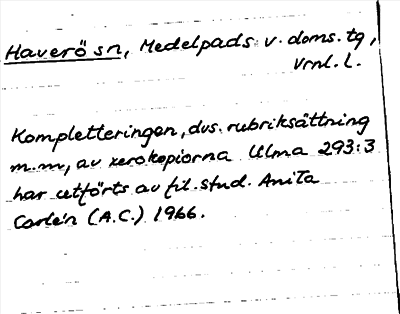 Haverö sn, Medelpads v. doms. tg,
Vrnl. l.
Kompletteringen, dvs. rubriksättning
m.m, av xerokopiorna Ulma 293:3
har utförts av fil. stud. Anita
Carlén (A.C.) 1966.